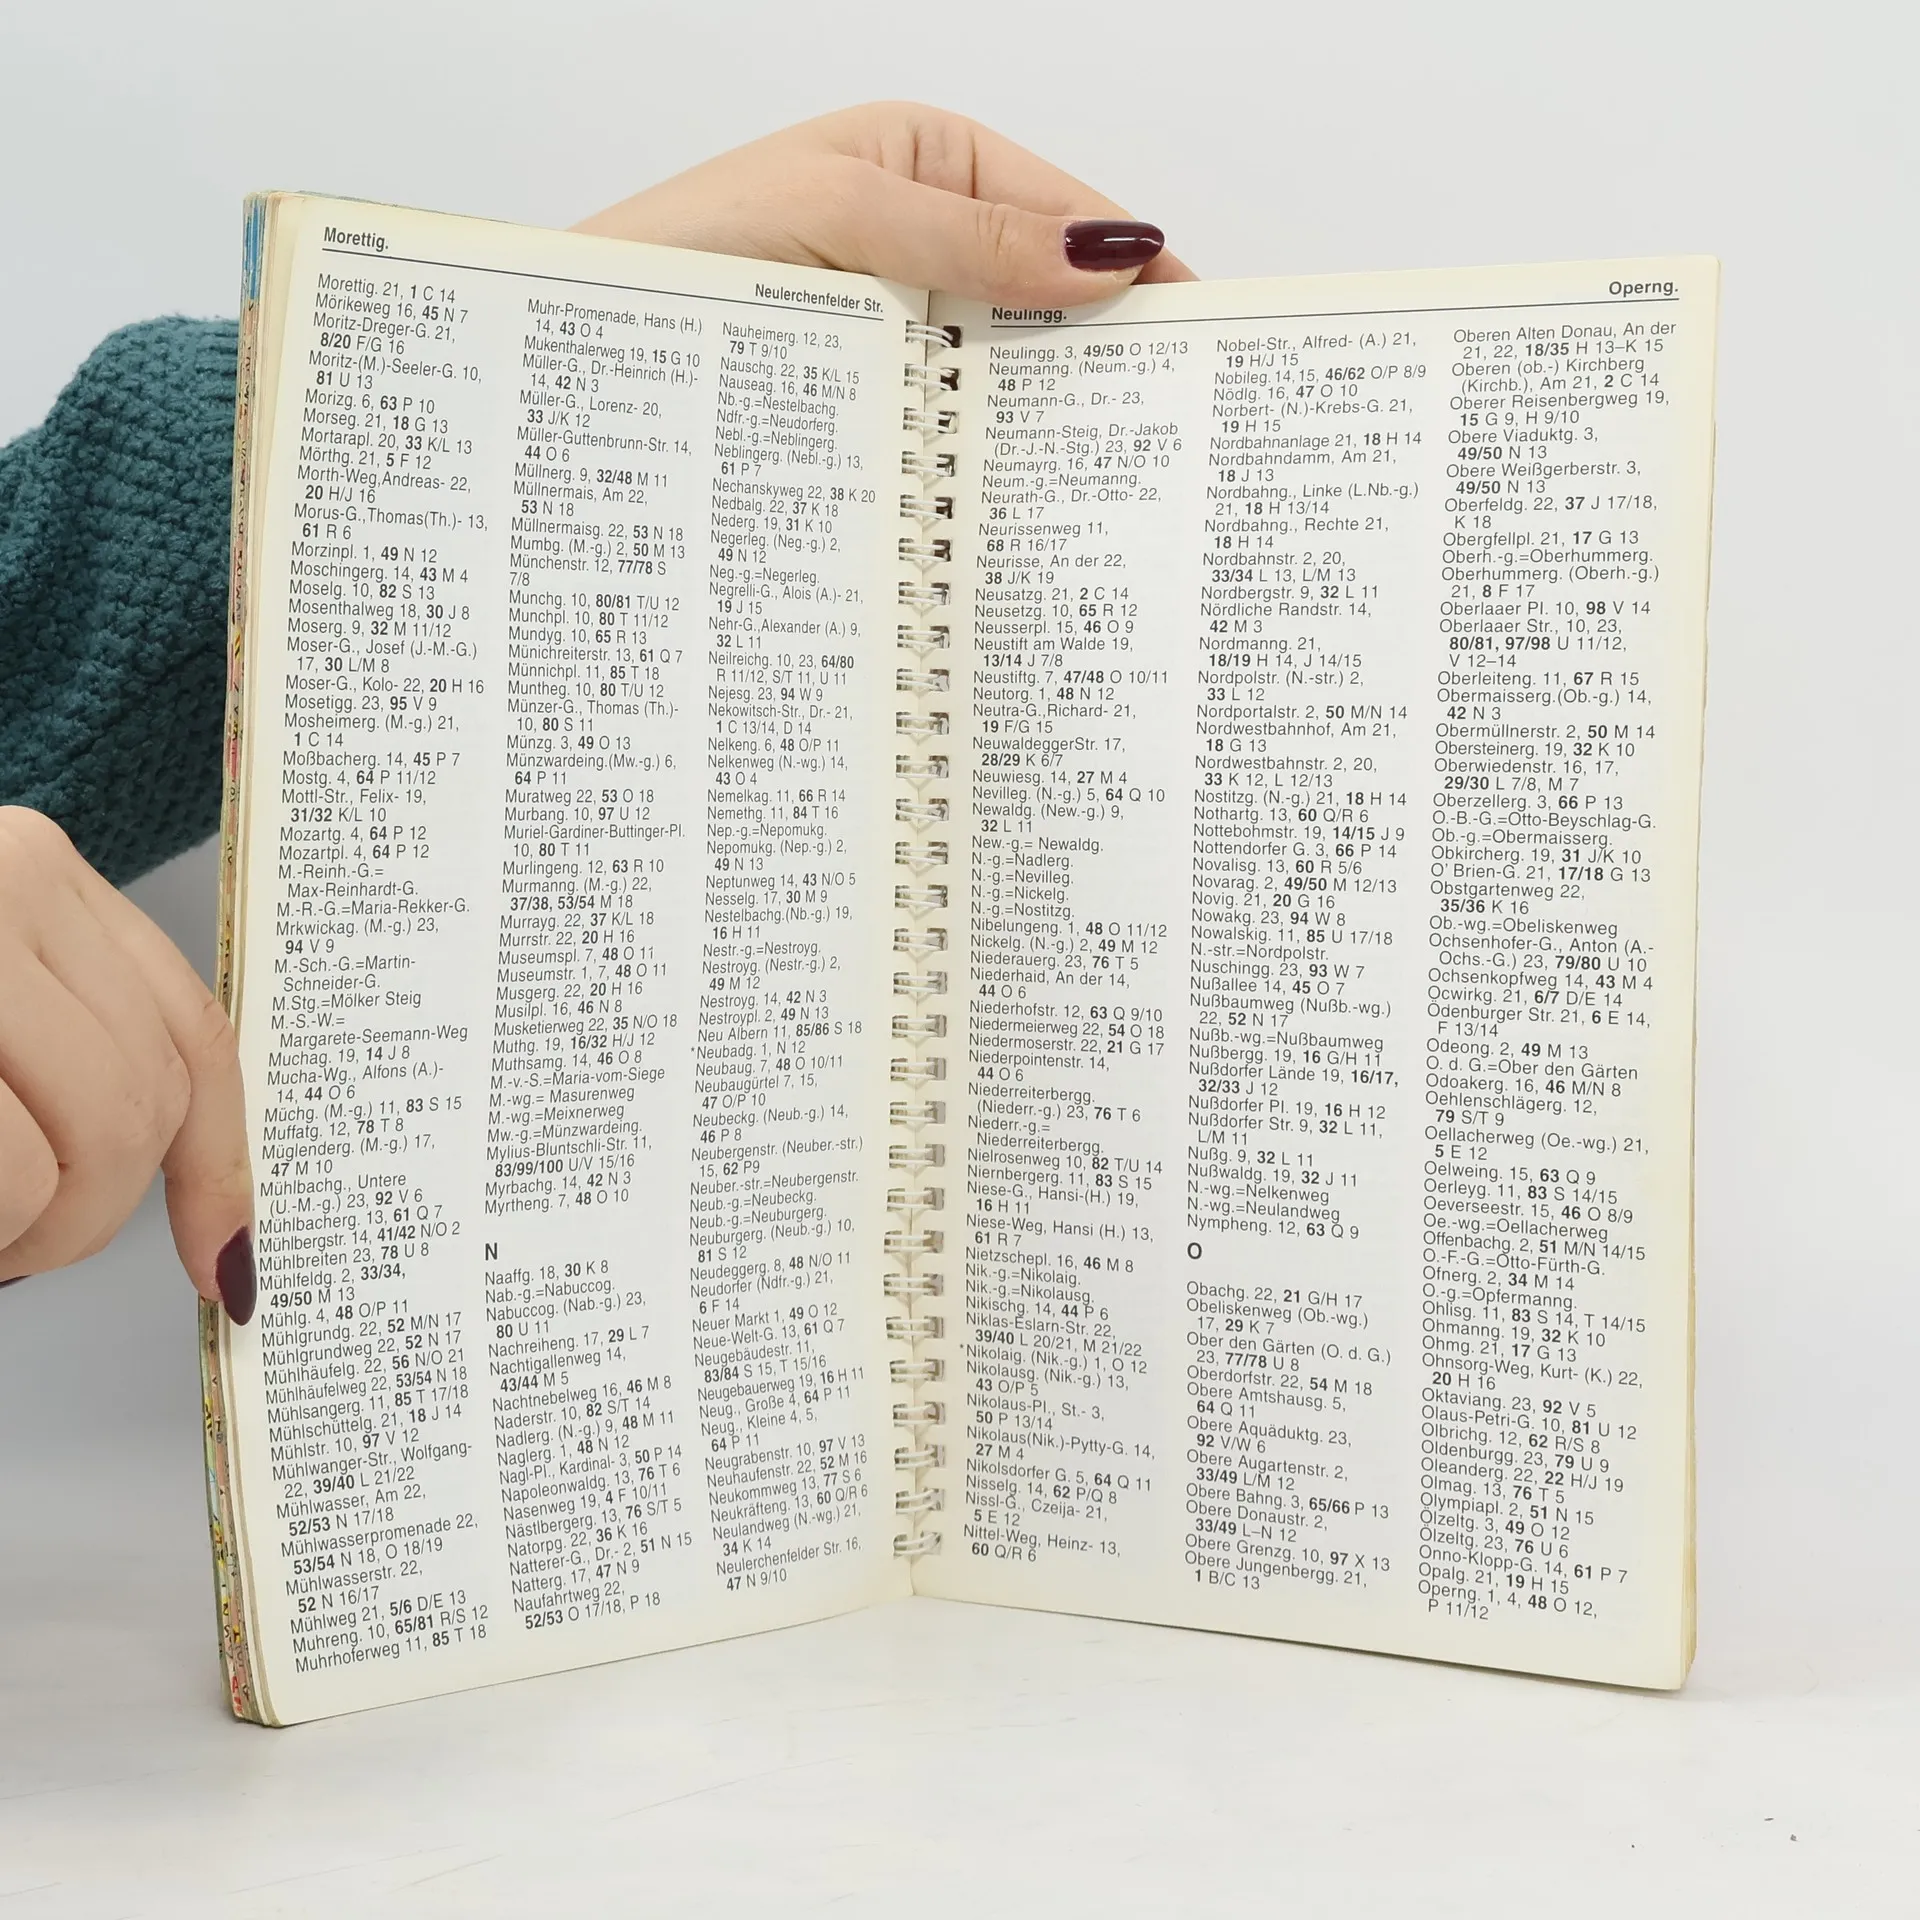 Morettig.
Neulerchenfelder Str.
Morettig. 21, 1 C 14
Mörikeweg 16, 45 N 7
Moritz-Dreger-G. 21,
8/20 F/G 16
Moritz-(M.)-Seeler-G. 10,
81 U 13
Morizg. 6, 63 P 10
Morseg. 21, 18 G 13
Mortarapl. 20, 33 K/L 13
Mörthg. 21, 5 F 12
Morth-Weg,Andreas- 22,
20 H/J 16
Morus-G.,Thomas(Th.)- 13,
61 R 6
Morzinpl. 1, 49 N 12
Moschingerg. 14, 43 M 4
Moselg. 10, 82 S 13
Mosenthalweg 18, 30 J 8
Moserg. 9, 32 M 11/12
Moser-G., Josef (J.-M.-G.)
17, 30 L/M 8
Moser-G., Kolo- 22, 20 H 16
Mosetigg. 23, 95 V 9
Mosheimerg. (M.-g.) 21,
1 C 14
Moßbacherg. 14, 45 P 7
Mostg. 4, 64 P 11/12
Mottl-Str., Felix- 19,
31/32 K/L 10
Mozartg. 4, 64 P 12
Mozartpl. 4, 64 P 12
M.-Reinh.-G.=
Max-Reinhardt-G.
M.-R.-G.=Maria-Rekker-G.
Mrkwickag. (M.-g.) 23,
94 V 9
M.-Sch.-G.=Martin-
Schneider-G.
M.Stg.=Mölker Steig
M.-S.-W.=
Margarete-Seemann-Weg
Muchag. 19, 14 J 8
Mucha-Wg., Alfons (A.)-
14, 44 O 6
Müchg. (M.-g.) 11, 83 S 15
Muffatg. 12, 78 T 8
Müglenderg. (M.-g.) 17,
47 M 10
Mühlbachg., Untere
(U.-M.-g.) 23, 92 V 6
Mühlbacherg. 13, 61 Q 7
Mühlbergstr. 14, 41/42 N/O 2
Mühlbreiten 23, 78 U 8
Mühlfeldg. 2, 33/34,
49/50 M 13
Mühlg. 4, 48 O/P 11
Mühlgrundg. 22, 52 M/N 17
Mühlgrundweg 22, 52 N 17
Mühlhäufelg. 22, 56 N/O 21
Mühlhäufelweg 22, 53/54 N 18
Mühlsangerg. 11, 85 T 17/18
Mühlschüttelg. 21, 18 J 14
Mühlstr. 10, 97 V 12
Mühlwanger-Str., Wolfgang-
22, 39/40 L 21/22
Mühlwasser, Am 22,
52/53 N 17/18
Mühlwasserpromenade 22,
53/54 N 18, O 18/19
Mühlwasserstr. 22,
52 N 16/17
Mühlweg 21, 5/6 D/E 13
Muhreng. 10, 65/81 R/S 12
Muhrhoferweg 11, 85 T 18
Muhr-Promenade, Hans (H.)
14, 43 O 4
Mukenthalerweg 19, 15 G 10
Müller-G., Dr.-Heinrich (H.)-
14, 42 N 3
Müller-G., Lorenz- 20,
33 J/K 12
Müller-Guttenbrunn-Str. 14,
44 O 6
Müllnerg. 9, 32/48 M 11
Müllnermais, Am 22,
53 N 18
Müllnermaisg. 22, 53 N 18
Mumbg. (M.-g.) 2, 50 M 13
Münchenstr. 12, 77/78 S
7/8
Munchg. 10, 80/81 T/U 12
Munchpl. 10, 80 T 11/12
Mundyg. 10, 65 R 13
Münichreiterstr. 13, 61 Q 7
Münnichpl. 11, 85 T 18
Muntheg. 10, 80 T/U 12
Münzer-G., Thomas (Th.)-
10, 80 S 11
Münzg. 3, 49 O 13
Münzwardeing.(Mw.-g.) 6,
64 P 11
Muratweg 22, 53 O 18
Murbang. 10, 97 U 12
Muriel-Gardiner-Buttinger-Pl.
10, 80 T 11
Murlingeng. 12, 63 R 10
Murmanng. (M.-g.) 22,
37/38, 53/54 M 18
Murrayg. 22, 37 K/L 18
Murrstr. 22, 20 H 16
Museumspl. 7, 48 O 11
Museumstr. 1, 7, 48 O 11
Musgerg. 22, 20 H 16
Musilpl. 16, 46 N 8
Musketierweg 22, 35 N/O 18
Muthg. 19, 16/32 H/J 12
Muthsamg. 14, 46 O 8
M.-v.-S.=Maria-vom-Siege
M.-wg.= Masurenweg
M.-wg.=Meixnerweg
Mw.-g.=Münzwardeing.
Mylius-Bluntschli-Str. 11,
83/99/100 U/V 15/16
Myrbachg. 14, 42 N 3
Myrtheng. 7, 48 O 10
N
Naaffg. 18, 30 K 8
Nab.-g.=Nabuccog.
Nabuccog. (Nab.-g.) 23,
80 U 11
Nachreiheng. 17, 29 L 7
Nachtigallenweg 14,
43/44 M 5
Nachtnebelweg 16, 46 M 8
Naderstr. 10, 82 S/T 14
Nadlerg. (N.-g.) 9, 48 M 11
Naglerg. 1, 48 N 12
Nagl-Pl., Kardinal- 3, 50 P 14
Napoleonwaldg. 13, 76 T 6
Nasenweg 19, 4 F 10/11
Nästlbergerg. 13, 76 S/T 5
Natorpg. 22, 36 K 16
Natterer-G., Dr.- 2, 51 N 15
Natterg. 17, 47 N 9
Naufahrtweg 22,
52/53 O 17/18, P 18
Nauheimerg. 12, 23,
79 T 9/10
Nauschg. 22, 35 K/L 15
Nauseag. 16, 46 M/N 8
Nb.-g.=Nestelbachg.
Ndfr.-g.=Neudorferg.
Nebl.-g.=Neblingerg.
Neblingerg. (Nebl.-g.) 13,
61 P 7
Nechanskyweg 22, 38 K 20
Nedbalg. 22, 37 K 18
Nederg. 19, 31 K 10
Negerleg. (Neg.-g.) 2,
49 N 12
Neg.-g.=Negerleg.
Negrelli-G., Alois (A.)- 21,
19 J 15
Nehr-G.,Alexander (A.) 9,
32 L 11
Neilreichg. 10, 23, 64/80
R 11/12, S/T 11, U 11
Nejesg. 23, 94 W 9
Nekowitsch-Str., Dr.- 21,
1 C 13/14, D 14
Nelkeng. 6, 48 O/P 11
Nelkenweg (N.-wg.) 14,
43 O 4
Nemelkag. 11, 66 R 14
Nemethg. 11, 84 T 16
Nep.-g.=Nepomukg.
Nepomukg. (Nep.-g.) 2,
49 N 13
Neptunweg 14, 43 N/O 5
Nesselg. 17, 30 M 9
Nestelbachg.(Nb.-g.) 19,
16 H 11
Nestr.-g.=Nestroyg.
Nestroyg. (Nestr.-g.) 2,
49 M 12
Nestroyg. 14, 42 N 3
Nestroypl. 2, 49 N 13
Neu Albern 11, 85/86 S 18
*Neubadg. 1, N 12
Neubaug. 7, 48 O 10/11
Neubaugürtel 7, 15,
47 O/P 10
Neubeckg. (Neub.-g.) 14,
46 P 8
Neubergenstr. (Neuber.-str.)
15, 62 P9
Neuber.-str.=Neubergenstr.
Neub.-g.=Neubeckg.
Neub.-g.=Neuburgerg.
Neuburgerg. (Neub.-g.) 10,
81 S 12
Neudeggerg. 8, 48 N/O 11
Neudorfer (Ndfr.-g.) 21,
6 F 14
Neuer Markt 1, 49 O 12
Neue-Welt-G. 13, 61 Q 7
Neugebäudestr. 11,
83/84 S 15, T 15/16
Neugebauerweg 19, 16 H 11
Neug., Große 4, 64 P 11
Neug., Kleine 4, 5,
64 P 11
Neugrabenstr. 10, 97 V 13
Neuhaufenstr. 22, 52 M 16
Neukommweg 13, 77 S 6
Neukräfteng. 13, 60 Q/R 6
Neulandweg (N.-wg.) 21,
34 K 14
Neulerchenfelder Str. 16,
47 N 9/10
Neulingg.
Operng.
Neulingg. 3, 49/50 O 12/13
Neumanng. (Neum.-g.) 4,
48 P 12
Neumann-G., Dr.- 23,
93 V 7
Neumann-Steig, Dr.-Jakob
(Dr.-J.-N.-Stg.) 23, 92 V 6
Neumayrg. 16, 47 N/O 10
Neum.-g.=Neumanng.
Neurath-G., Dr.-Otto- 22,
36 L 17
Neurissenweg 11,
68 R 16/17
Neurisse, An der 22,
38 J/K 19
Neusatzg. 21, 2 C 14
Neusetzg. 10, 65 R 12
Neusserpl. 15, 46 O 9
Neustift am Walde 19,
13/14 J 7/8
Neustiftg. 7, 47/48 O 10/11
Neutorg. 1, 48 N 12
Neutra-G.,Richard- 21,
19 F/G 15
NeuwaldeggerStr. 17,
28/29 K 6/7
Neuwiesg. 14, 27 M 4
Nevilleg. (N.-g.) 5, 64 Q 10
Newaldg. (New.-g.) 9,
32 L 11
New.-g.= Newaldg.
N.-g.=Nadlerg.
N.-g.=Nevilleg.
N.-g.=Nickelg.
N.-g.=Nostitzg.
Nibelungeng. 1, 48 O 11/12
Nickelg. (N.-g.) 2, 49 M 12
Niederauerg. 23, 76 T 5
Niederhaid, An der 14,
44 O 6
Niederhofstr. 12, 63 Q 9/10
Niedermeierweg 22, 54 O 18
Niedermoserstr. 22, 21 G 17
Niederpointenstr. 14,
44 O 6
Niederreiterbergg.
(Niederr.-g.) 23, 76 T 6
Niederr.-g.=
Niederreiterbergg.
Nielrosenweg 10, 82 T/U 14
Niernbergerg. 11, 83 S 15
Niese-G., Hansi-(H.) 19,
16 H 11
Niese-Weg, Hansi (H.) 13,
61 R 7
Nietzschepl. 16, 46 M 8
Nik.-g.=Nikolaig.
Nik.-g.=Nikolausg.
Nikischg. 14, 44 P 6
Niklas-Eslarn-Str. 22,
39/40 L 20/21, M 21/22
*Nikolaig. (Nik.-g.) 1, O 12
Nikolausg. (Nik.-g.) 13,
43 O/P 5
Nikolaus-Pl., St.- 3,
50 P 13/14
Nikolaus(Nik.)-Pytty-G. 14,
27 M 4
Nikolsdorfer G. 5, 64 Q 11
Nisselg. 14, 62 P/Q 8
Nissl-G., Czeija- 21,
5 E 12
Nittel-Weg, Heinz- 13,
60 Q/R 6
Nobel-Str., Alfred- (A.) 21,
19 H/J 15
Nobileg. 14,15, 46/62 O/P 8/9
Nödlg. 16, 47 O 10
Norbert- (N.)-Krebs-G. 21,
19 H 15
Nordbahnanlage 21, 18 H 14
Nordbahndamm, Am 21,
18 J 13
Nordbahng., Linke (L.Nb.-g.)
21, 18 H 13/14
Nordbahng., Rechte 21,
18 H 14
Nordbahnstr. 2, 20,
33/34 L 13, L/M 13
Nordbergstr. 9, 32 L 11
Nördliche Randstr. 14,
42 M 3
Nordmanng. 21,
18/19 H 14, J 14/15
Nordpolstr. (N.-str.) 2,
33 L 12
Nordportalstr. 2, 50 M/N 14
Nordwestbahnhof, Am 21,
18 G 13
Nordwestbahnstr. 2, 20,
33 K 12, L 12/13
Nostitzg. (N.-g.) 21, 18 H 14
Nothartg. 13, 60 Q/R 6
Nottebohmstr. 19, 14/15 J 9
Nottendorfer G. 3, 66 P 14
Novalisg. 13, 60 R 5/6
Novarag. 2, 49/50 M 12/13
Novig. 21, 20 G 16
Nowakg. 23, 94 W 8
Nowalskig. 11, 85 U 17/18
N.-str.=Nordpolstr.
Nuschingg. 23, 93 W 7
Nußallee 14, 45 O 7
Nußbaumweg (Nußb.-wg.)
22, 52 N 17
Nußb.-wg.=Nußbaumweg
Nußbergg. 19, 16 G/H 11
Nußdorfer Lände 19, 16/17,
32/33 J 12
Nußdorfer Pl. 19, 16 H 12
Nußdorfer Str. 9, 32 L 11,
L/M 11
Nußg. 9, 32 L 11
Nußwaldg. 19, 32 J 11
N.-wg.=Nelkenweg
N.-wg.=Neulandweg
Nympheng. 12, 63 Q 9
O
Obachg. 22, 21 G/H 17
Obeliskenweg (Ob.-wg.)
17, 29 K 7
Ober den Gärten (O. d. G.)
23, 77/78 U 8
Oberdorfstr. 22, 54 M 18
Obere Amtshausg. 5,
64 Q 11
Obere Aquäduktg. 23,
92 V/W 6
Obere Augartenstr. 2,
33/49 L/M 12
Obere Bahng. 3, 65/66 P 13
Obere Donaustr. 2,
33/49 L–N 12
Obere Grenzg. 10, 97 X 13
Obere Jungenbergg. 21,
1 B/C 13
Oberen Alten Donau, An der
21, 22, 18/35 H 13–K 15
Oberen (ob.-) Kirchberg
(Kirchb.), Am 21, 2 C 14
Oberer Reisenbergweg 19,
15 G 9, H 9/10
Obere Viaduktg. 3,
49/50 N 13
Obere Weißgerberstr. 3,
49/50 N 13
Oberfeldg. 22, 37 J 17/18,
K 18
Obergfellpl. 21, 17 G 13
Oberh.-g.=Oberhummerg.
Oberhummerg. (Oberh.-g.)
21, 8 F 17
Oberlaaer Pl. 10, 98 V 14
Oberlaaer Str., 10, 23,
80/81, 97/98 U 11/12,
V 12–14
Oberleiteng. 11, 67 R 15
Obermaisserg.(Ob.-g.) 14,
42 N 3
Obermüllnerstr. 2, 50 M 14
Obersteinerg. 19, 32 K 10
Oberwiedenstr. 16, 17,
29/30 L 7/8, M 7
Oberzellerg. 3, 66 P 13
O.-B.-G.=Otto-Beyschlag-G.
Ob.-g.=Obermaisserg.
Obkircherg. 19, 31 J/K 10
O' Brien-G. 21, 17/18 G 13
Obstgartenweg 22,
35/36 K 16
Ob.-wg=Obeliskenweg
Ochsenhofer-G., Anton (A.-
Ochs.-G.) 23, 79/80 U 10
Ochsenkopfweg 14, 43 M 4
Ocwirkg. 21, 6/7 D/E 14
Ödenburger Str. 21, 6 E 14,
F 13/14
Odeong. 2, 49 M 13
O. d. G.=Ober den Gärten
Odoakerg. 16, 46 M/N 8
Oehlenschlägerg. 12,
79 S/T 9
Oellacherweg (Oe.-wg.) 21,
5 E 12
Oelweing. 15, 63 Q 9
Oerleyg. 11, 83 S 14/15
Oeverseestr. 15, 46 O 8/9
Oe.-wg.=Oellacherweg
Offenbachg. 2, 51 M/N 14/15
O.-F.-G.=Otto-Fürth-G.
Ofnerg. 2, 34 M 14
O.-g.=Opfermanng.
Ohlisg. 11, 83 S 14, T 14/15
Ohmanng. 19, 32 K 10
Ohmg. 21, 17 G 13
Ohnsorg-Weg, Kurt- (K.) 22,
20 H 16
Oktaviang. 23, 92 V 5
Olaus-Petri-G. 10, 81 U 12
Olbrichg. 12, 62 R/S 8
Oldenburgg. 23, 79 U 9
Oleanderg. 22, 22 H/J 19
Olmag. 13, 76 T 5
Olympiapl. 2, 51 N 15
Ölzeltg. 3, 49 O 12
Ölzeltg. 23, 76 U 6
Onno-Klopp-G. 14, 61 P 7
Opalg. 21, 19 H 15
Operng. 1, 4, 48 O 12,
P 11/12